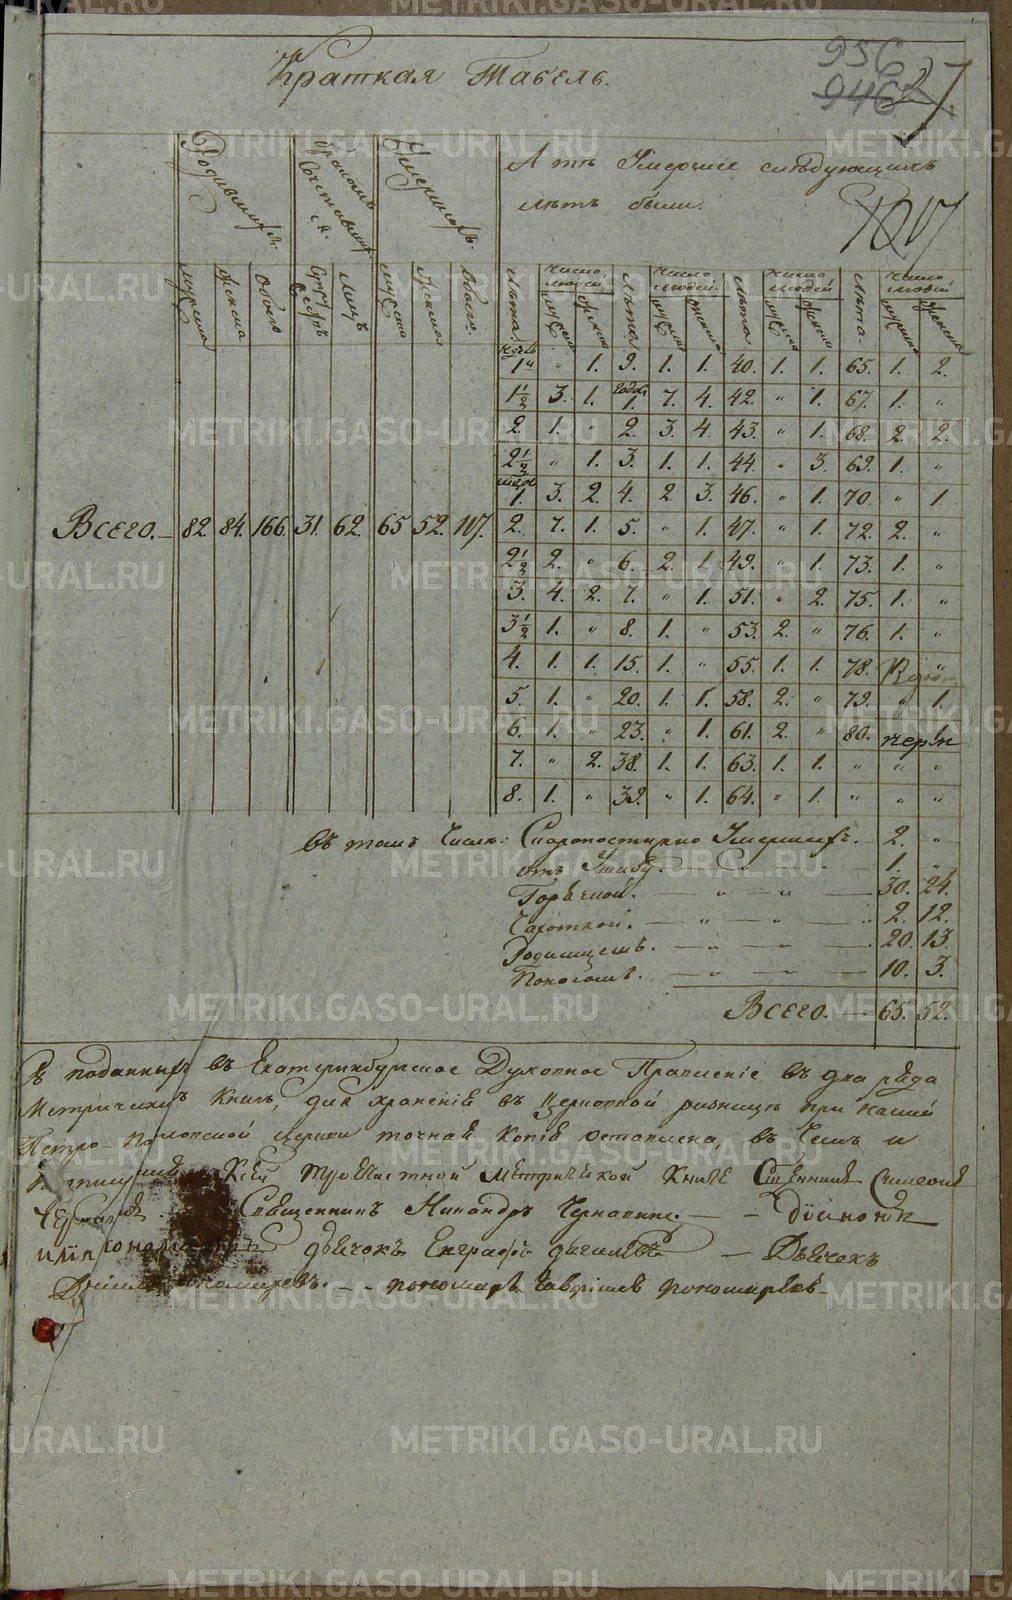 Краткая Табель.
956
946
27
Родившихся.
Бракомъ сочетавшихся.
Умершихъ.
А тѣ Умершіе слѣдующихъ
лѣтъ были.
мужска женска обоего супружествъ лицъ мужска женска обоего лѣта. число людей мужска женска лѣта число людей мужска женска лѣта число людей мужска женска лѣта. число людей мужска женска
1 „ 1. 9. 1. 1. 40. 1. 1. 65. 1. 2.
1½ 3. 1. годов 1. 7. 4. 42. „ 1. 67. 1. „
2. 1. „ 2. 3. 4. 43. „ 1. 68. 2. 2.
2½ „ 1. 3. 1. 1. 44. „ 3. 69. 1. „
1. 3. 2. 4. 2. 3. 46. „ 1. 70. „ 1
Всего. 82. 84. 166. 31. 62. 65 52. 117. 2. 7. 1. 5. „ 1. 47. „ 1. 72. 2. „
2½ 2. „ 6. 2. 1. 49. „ 1. 73. 1. „
3. 4. 2. 7. „ 1. 51. „ 2. 75. 1. „
3½ 1. „ 8. 1. „ 53. 2. „ 76. 1. „
4. 1. 1. 15. 1. „ 55. 1. 1. 78.
5. 1. „ 20. 1. 1. 58. 2. „ 79. „ 1.
6. 1. „ 23. „ 1. 61. 2. „ 80.
7. „ 2. 38. 1. 1. 63. 1. 1. „ „ „
8. 1. „ 39. „ 1. 64. „ 1. „ „ „
Въ томъ Числѣ: Скоропостижно Умершихъ. 2. „
отъ 1. „
Горячкой. — „ — „ — 30. 24.
Чахоткой. — „ — „ — 2. 12.
Родимцемъ. — „ — „ — 20. 13.
Поносомъ. — „ — „ — 10. 3.
Всего. — 65. 52.
Съ поданныхъ въ Екатеринбургское Духовное Правленіе въ два ряда
Метрическихъ Книгъ, для храненія въ Церковной ризницѣ при нашей
Петро-Павловской церкви точная копія оставлена, въ чемъ и
Къ сей троечастной Метрической Книге Священникъ Симеонъ
Священникъ Никандръ Чернавинъ. — Діаконъ
дьячокъ Евграфъ — Дьячекъ
Пономаревъ. — пономарь Гавріилъ Пономаревъ
METRIKI.GASO-URAL.RU